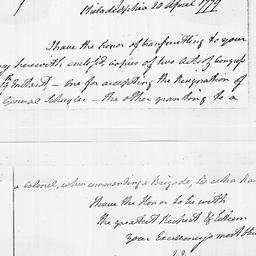 Philadelphia 20 April 1779
I have the honor of transmitting to your
herewith enclosed, copies of two Acts of Congress
Instant - one for accepting the Resignation of
General Schuyler - the other granting to a
a Colonel, when commanding a Brigade,
I have the Honor to be with
the greatest Respect & Esteem
your Excellency's most